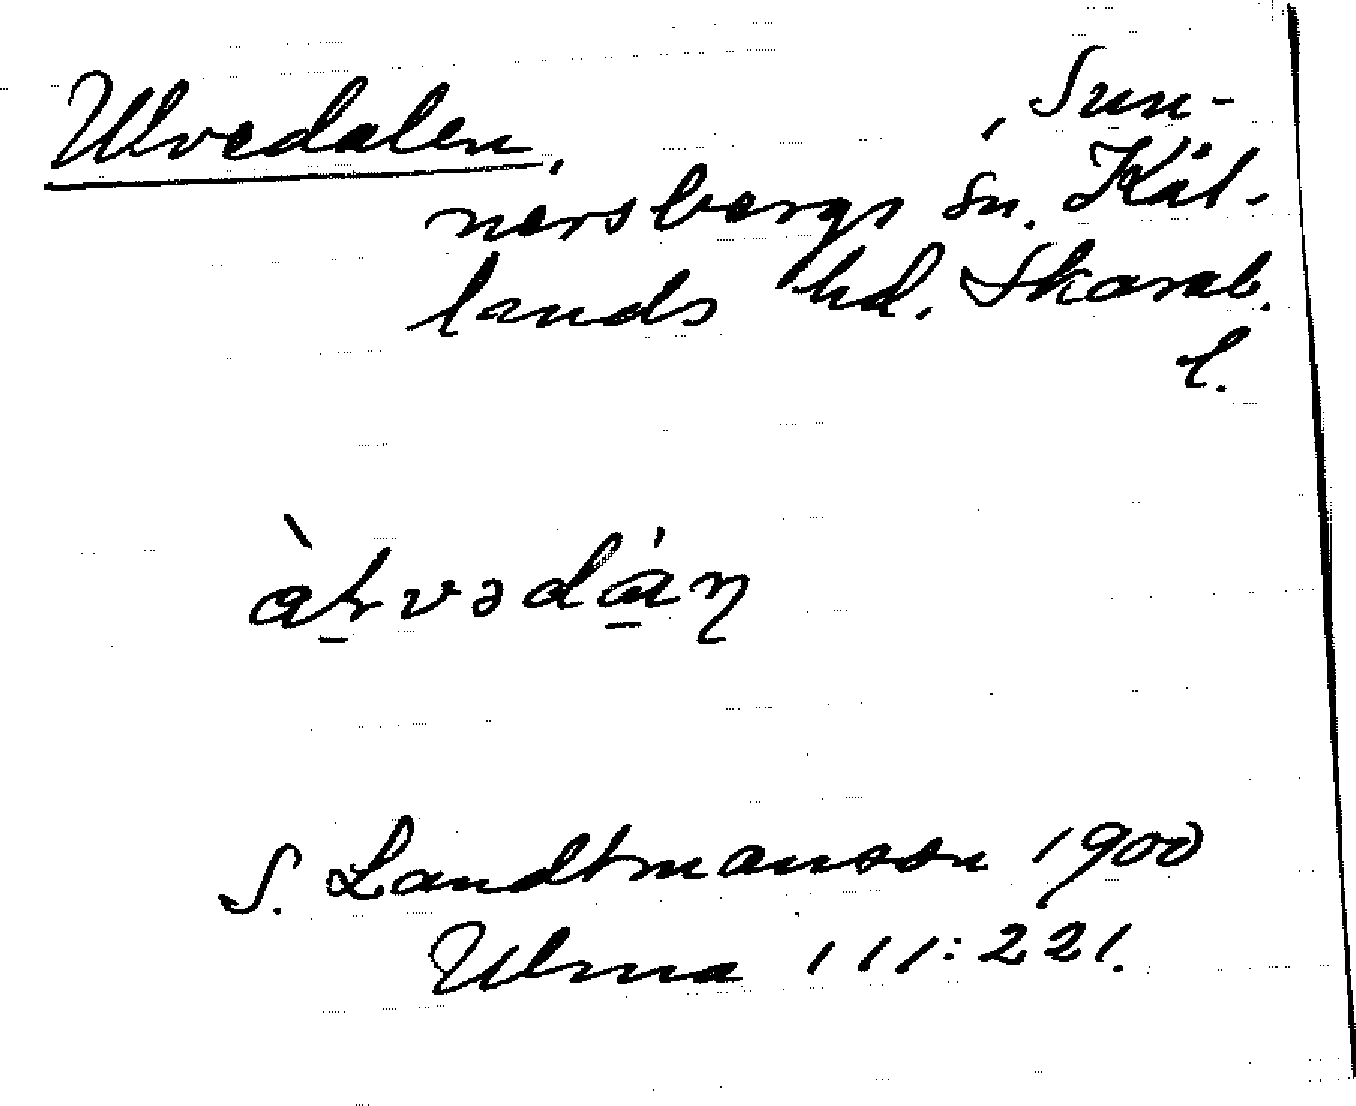 Ulvedalen, , Sun-
nersbergs sn. Kål-
lands hd. Skarab.
l.
S. Landtmanson 1900
Ulma 111:221.